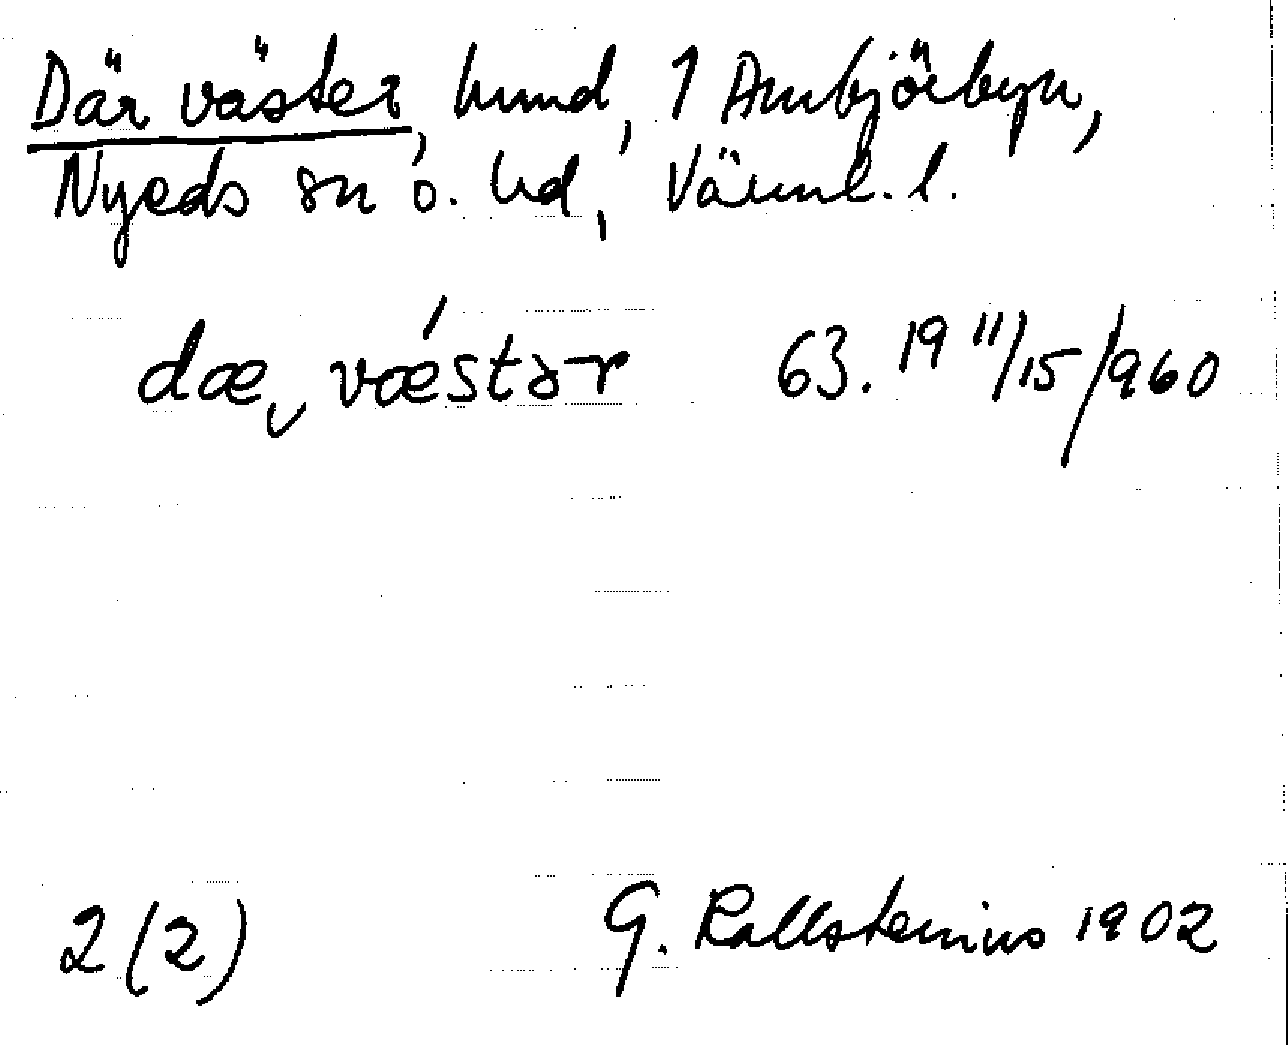 Där väster, hmd, 1 Ambjörbyn,
Nyeds sn o. hd, Värml. l.
dæ, væ´stər 63. 19 11/15/960
2(2) G. Kallstenius 1902